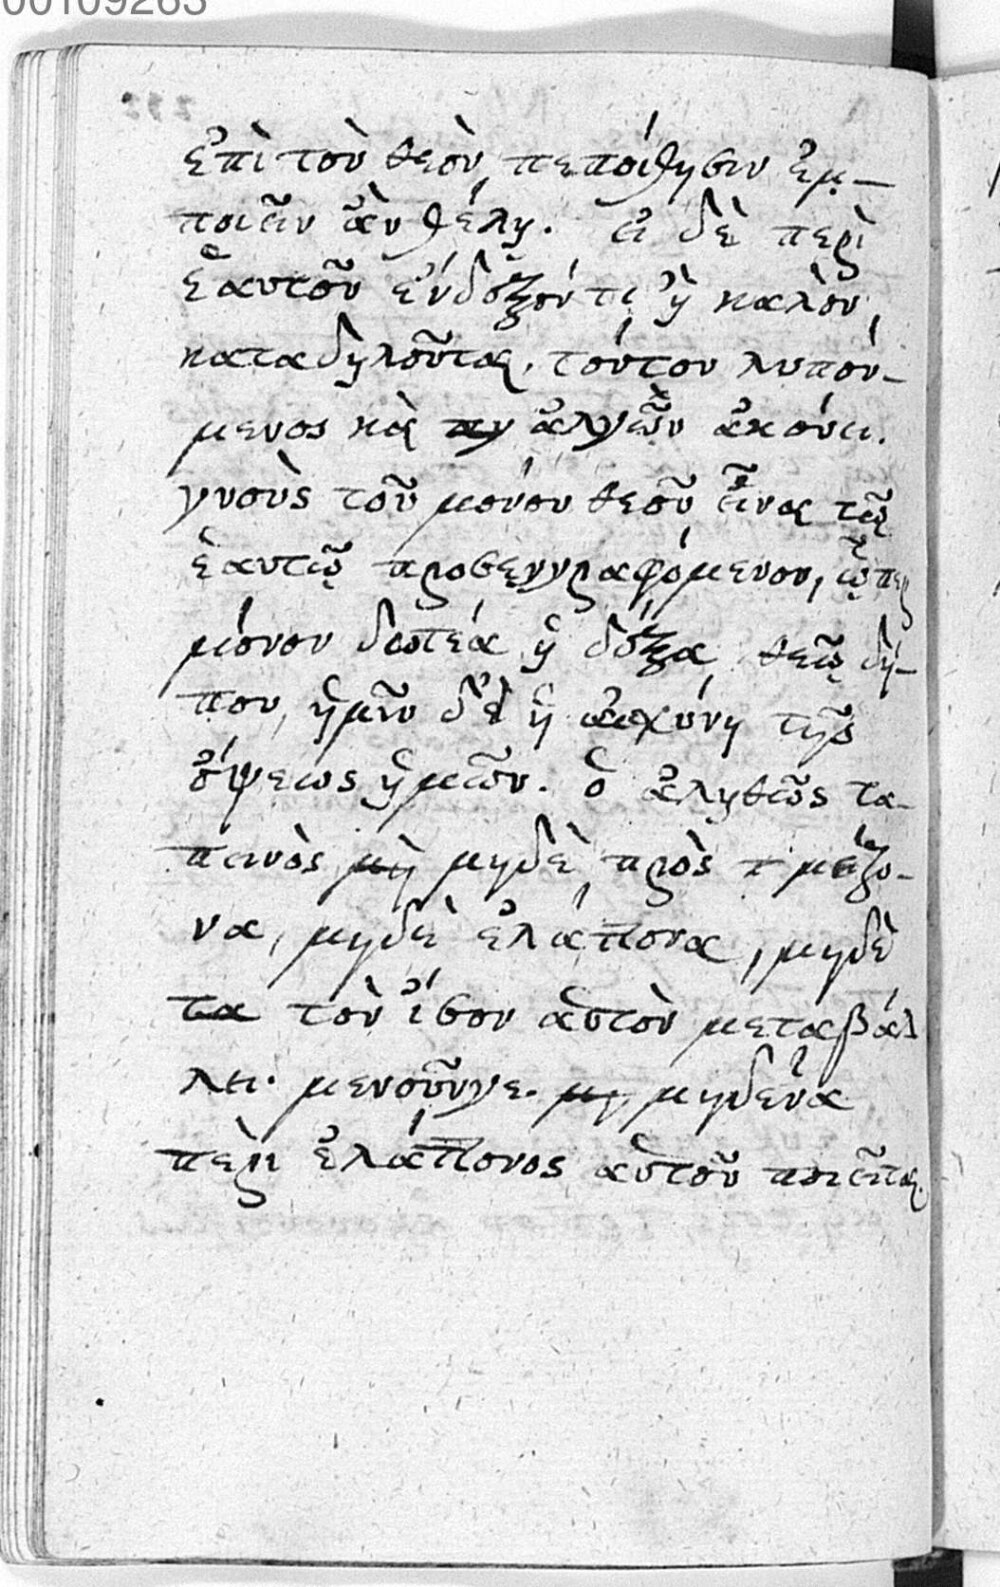 00109263
ἐπὶ τὸν θεὸν, πεποίθησιν ἐμ-
ποιεῖν ἂν θέλῃ. εἰ δὲ περὶ
ἑαυτοῦ ἔνδοξόν τι ἢ καλὸν,
καταδηλοῦται, τοῦτον λυπού-
μενος καὶ ἀλγῶν ἀκούει.
γνοὺς τοῦ μόνου θεοῦ εἶναι τῶ
ἑαυτῷ προσεγγραφόμενον, ᾧπερ
μόνον δοτέα ἡ δόξα, θεῷ δή-
που, ἡμῖν δὲ ἡ αἰσχύνη τῆς
ὄψεως ἡμῶν. ὁ ἀληθῶς τα-
πεινὸς μὴ μηδὲ πρὸς μείζο-
να, μηδὲ ἐλάττονα, μηδὲ
τα τὸν ἴσον αὐτὸν μεταβάλ
λει. μενοῦνγε. μη μηδένα
περὶ ἐλάττονος αὐτοῦ ποιεῖται.